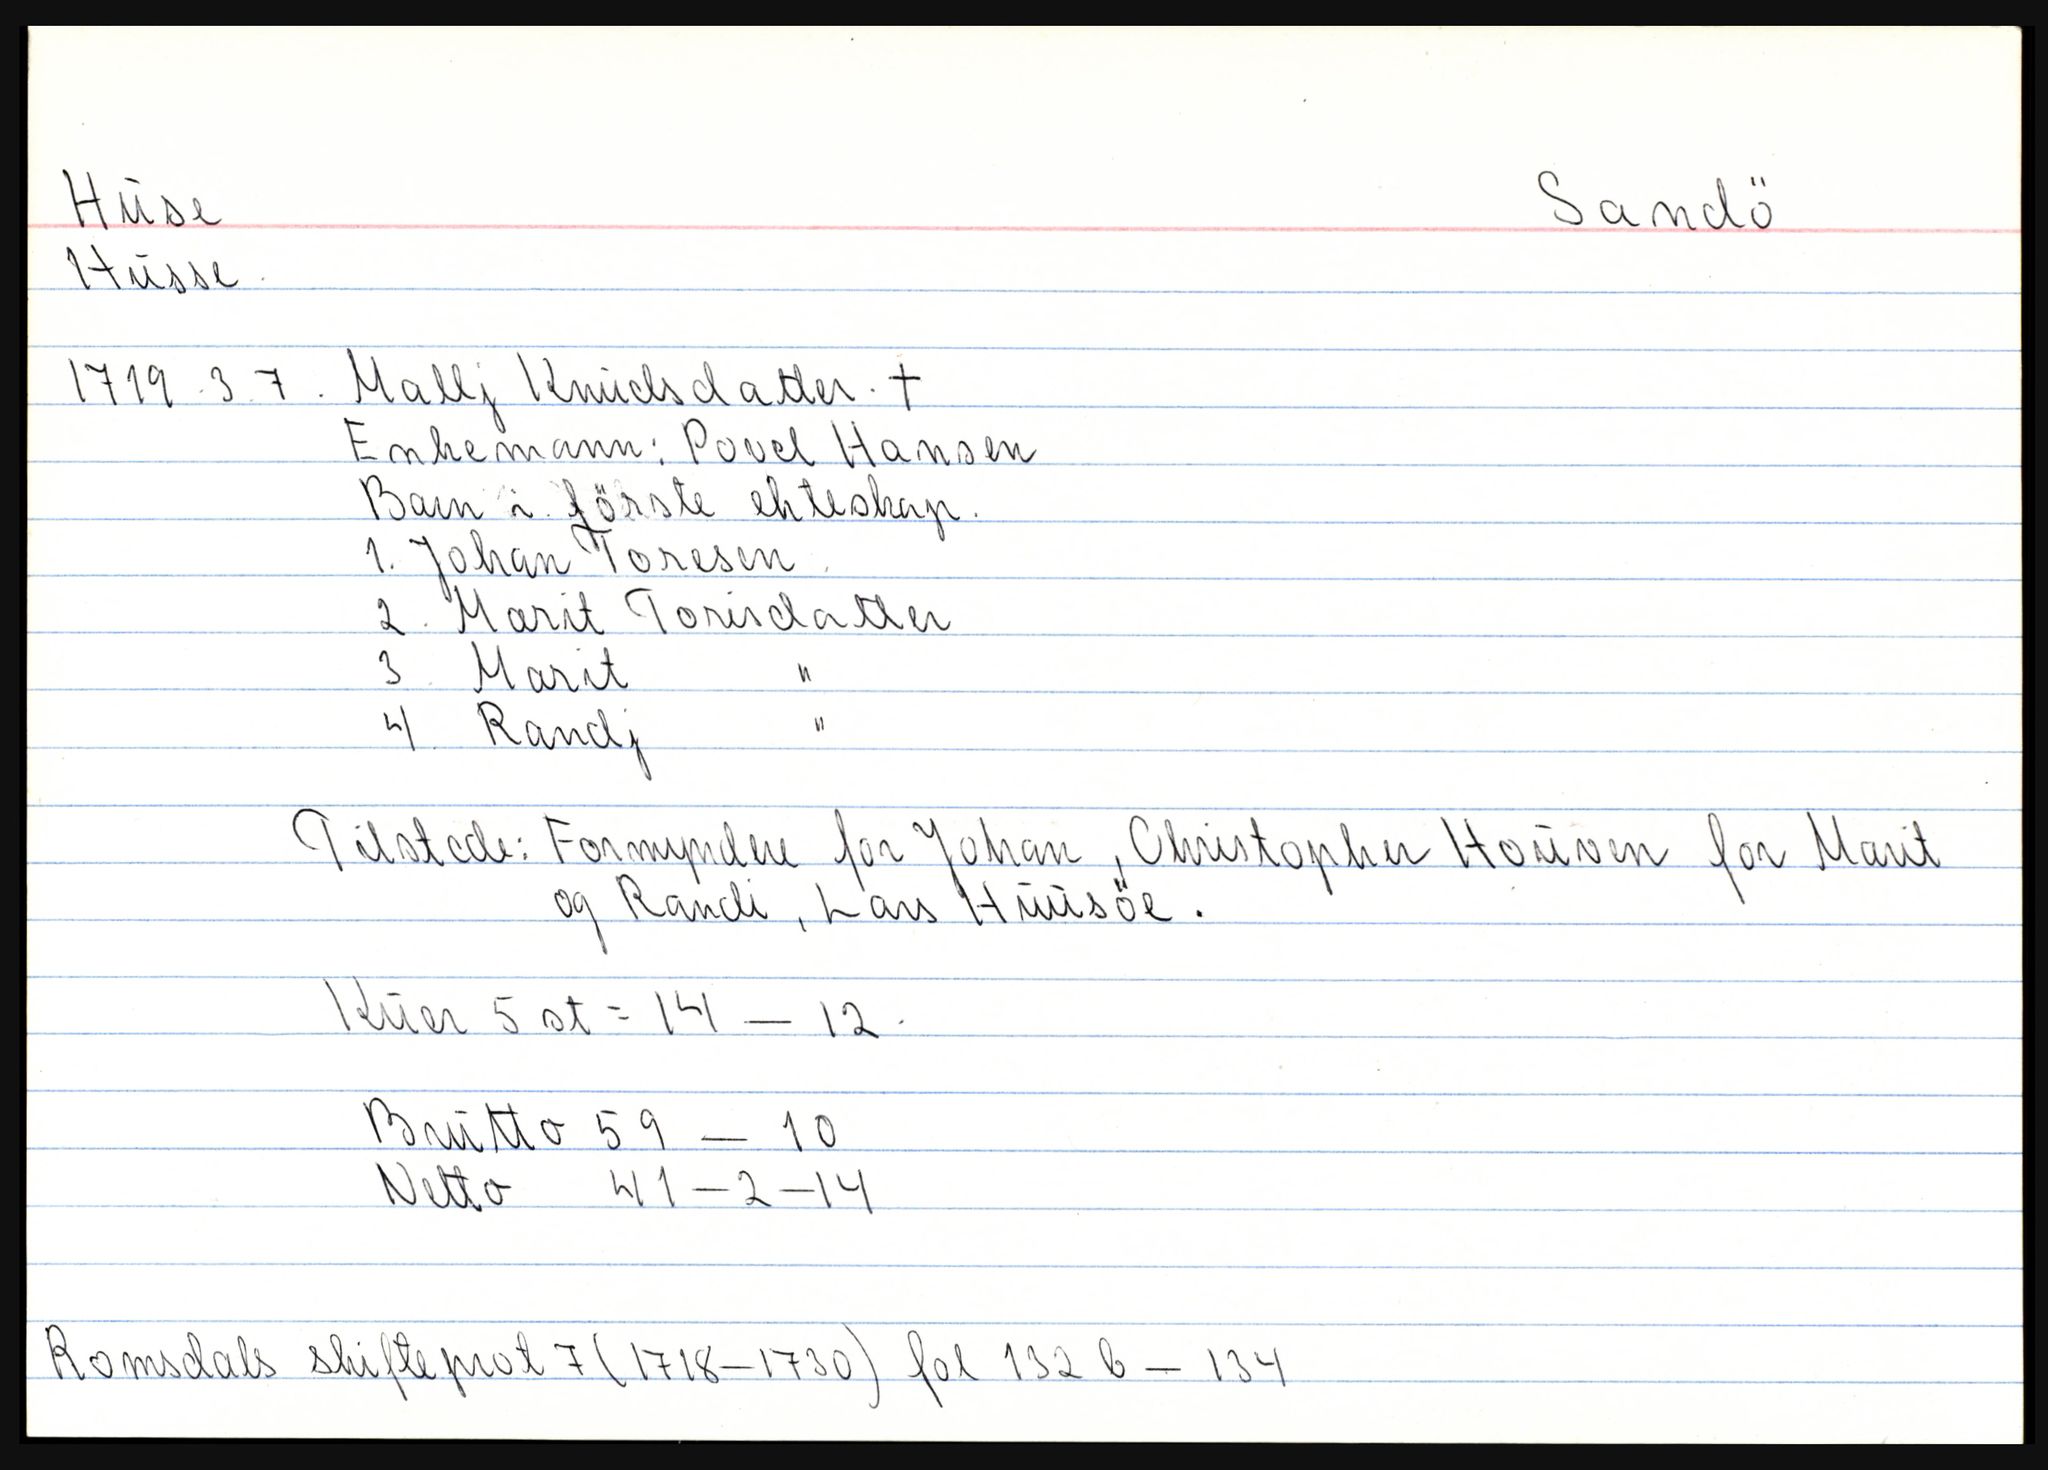 Hüse Sandö
Hüsse.
1719.3.7. Mallj Knüdsdatter. †
Enkemann: Povel Hansen
Barn i første ekteskap.
1. Johan Toresen.
2. Marit Torisdatter
3. Marit "
4. Randj "
Tilstede: Formyndere for Johan, Christopher Hoüven for Marit
og Randi, Lars Hüüsöe.
Küer 5 st = 14 — 12.
Brütto 59 — 10
Netto 41 — 2 — 14
Romsdals skifteprot 7 (1718—1730) fol 132 b — 134